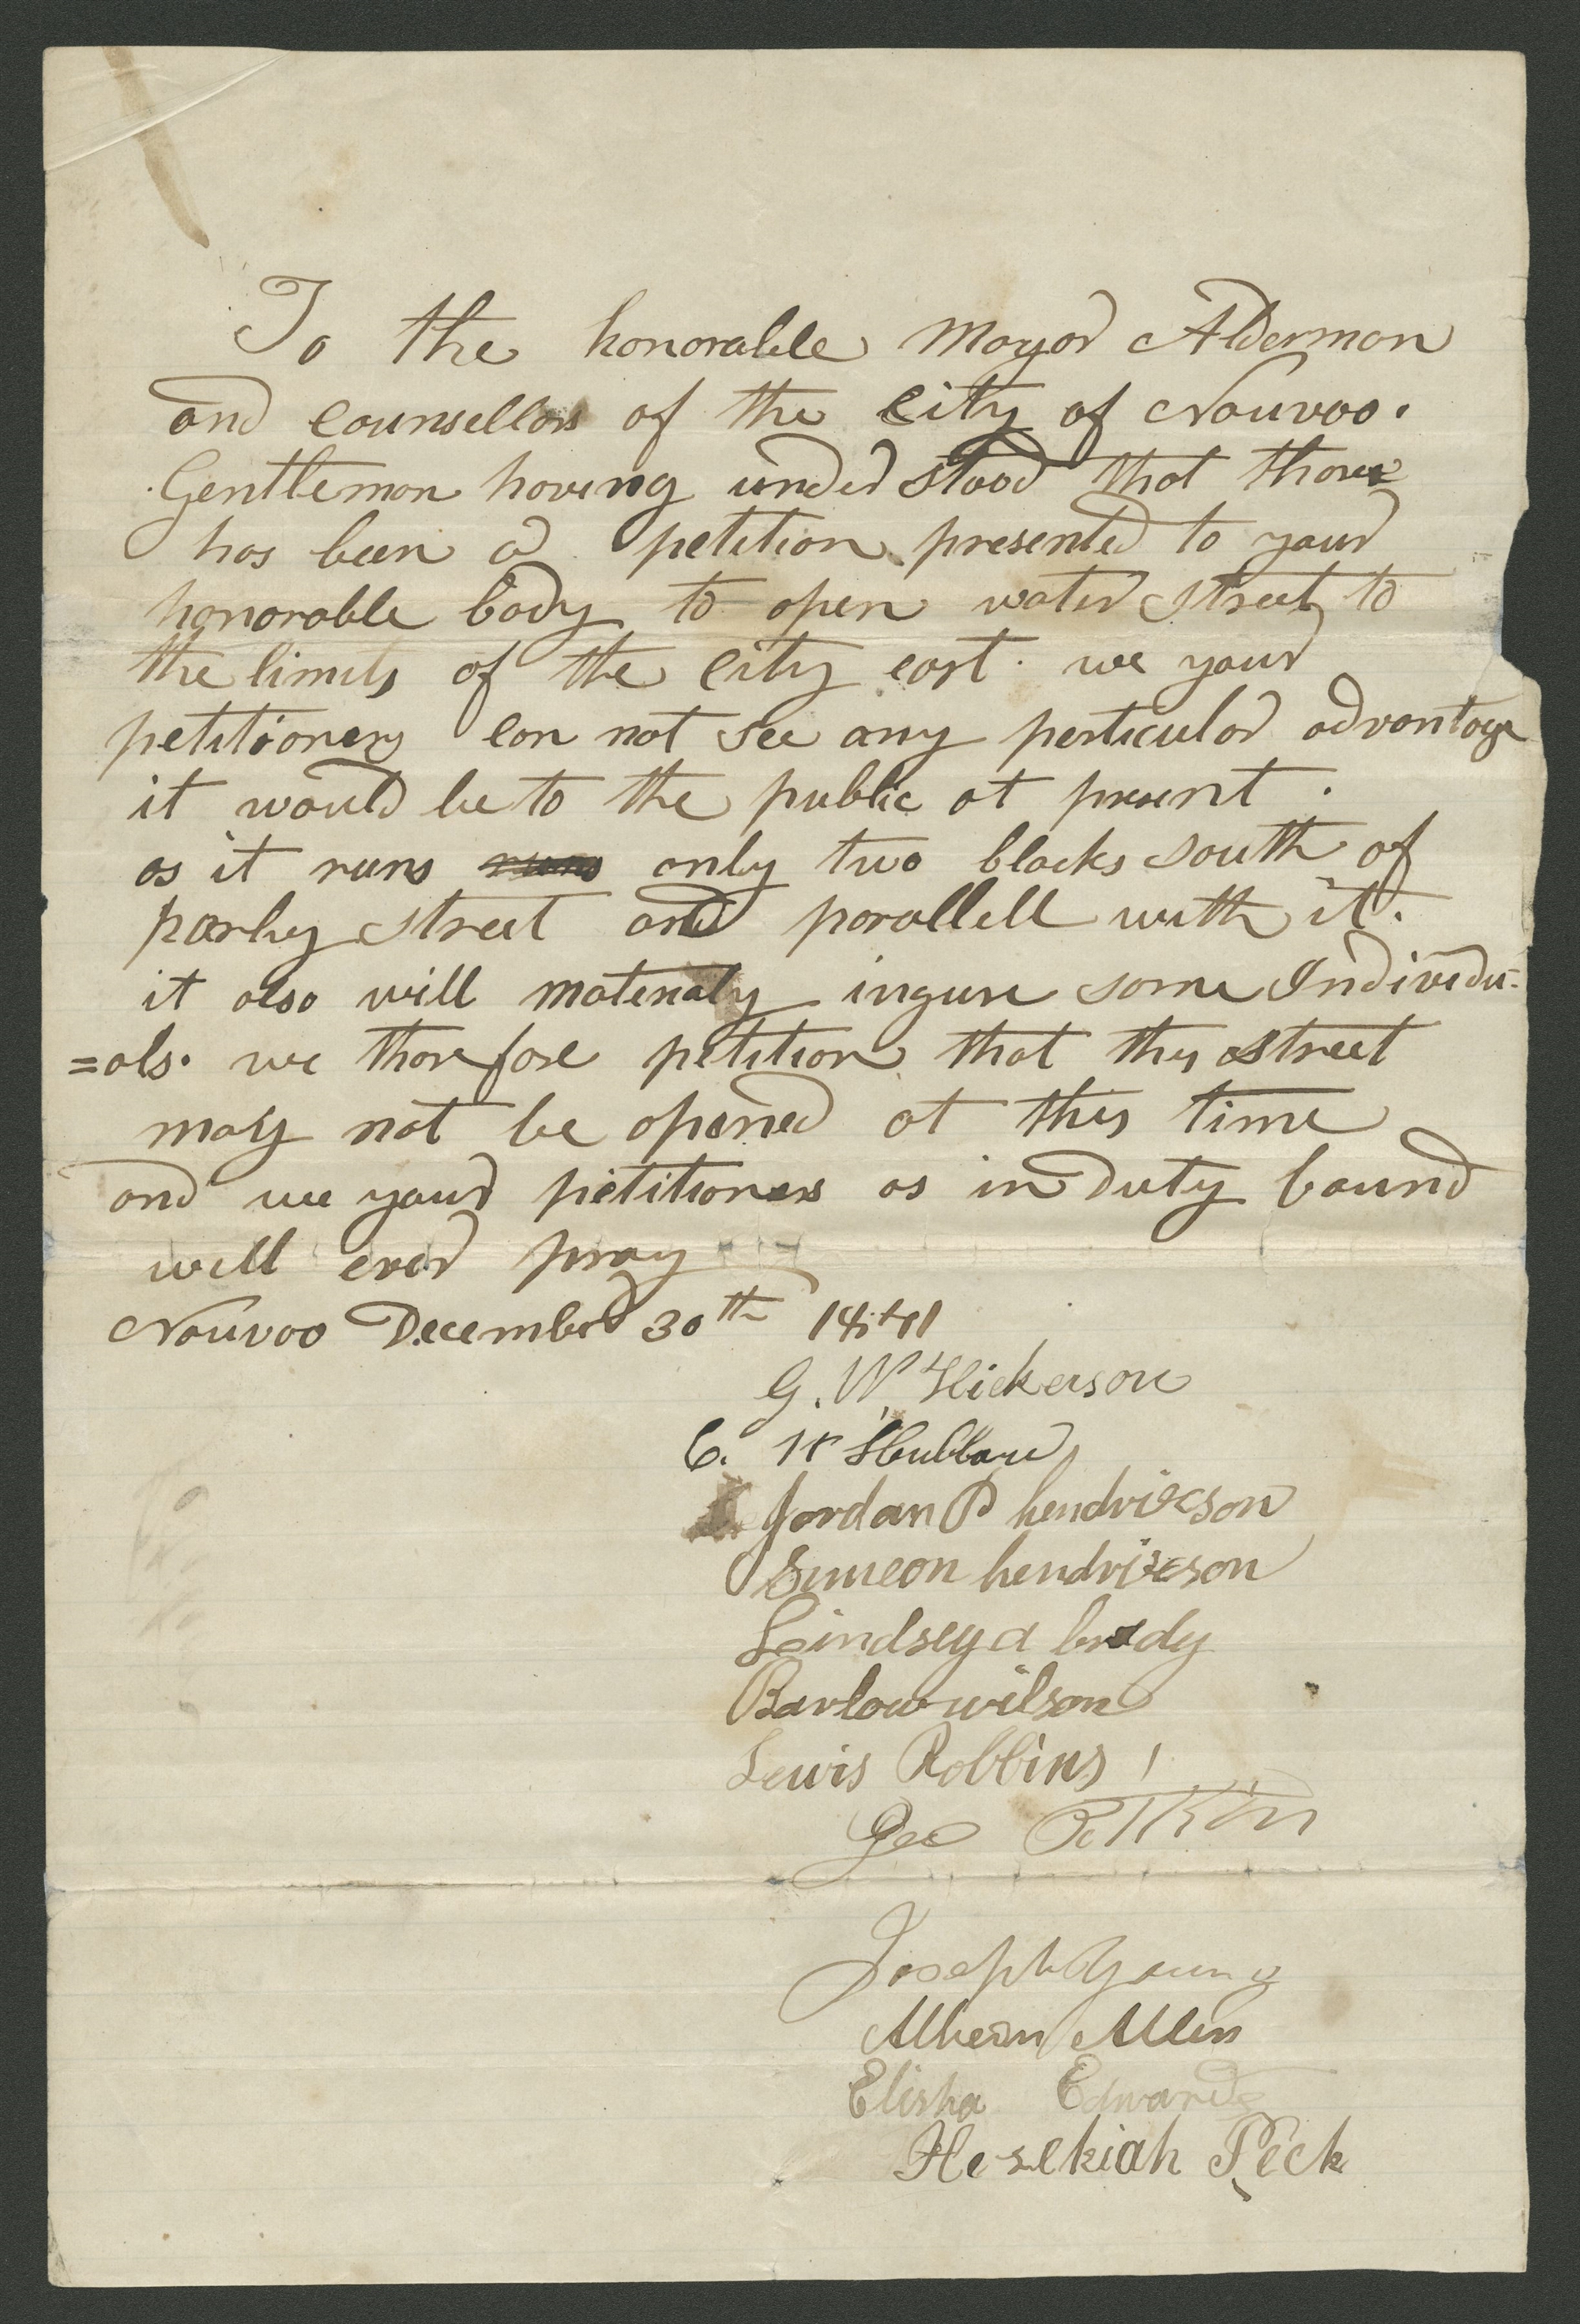 To the honorable Mayor Alderman
and counsellors of the City of Nauvoo.
Gentleman having under stood that thare
has been a petition presented to your
honorable body to open water street to
the limits of the City east. we your
petitioners can not see any perticular advantage
it would be to the public at present.
as it runs runs only two blocks south of
parley street and parallell with it.
it also will materialy ingure some Individu=
=als. we tharefore petition that this street
may not be opened at this time
and we your petitioners as in Duty bound
will ever pray
Nauvoo December 30th 1841
G. W. Hickerson
C. W Hubbard
Jordan P hendrixson
Simeon hendrixson
Lindsey a brady
Barlow wilson
Lewis Robbins
Geo
Joseph Young
Albern Allen
Elisha Edwards
Hezekiah Peck